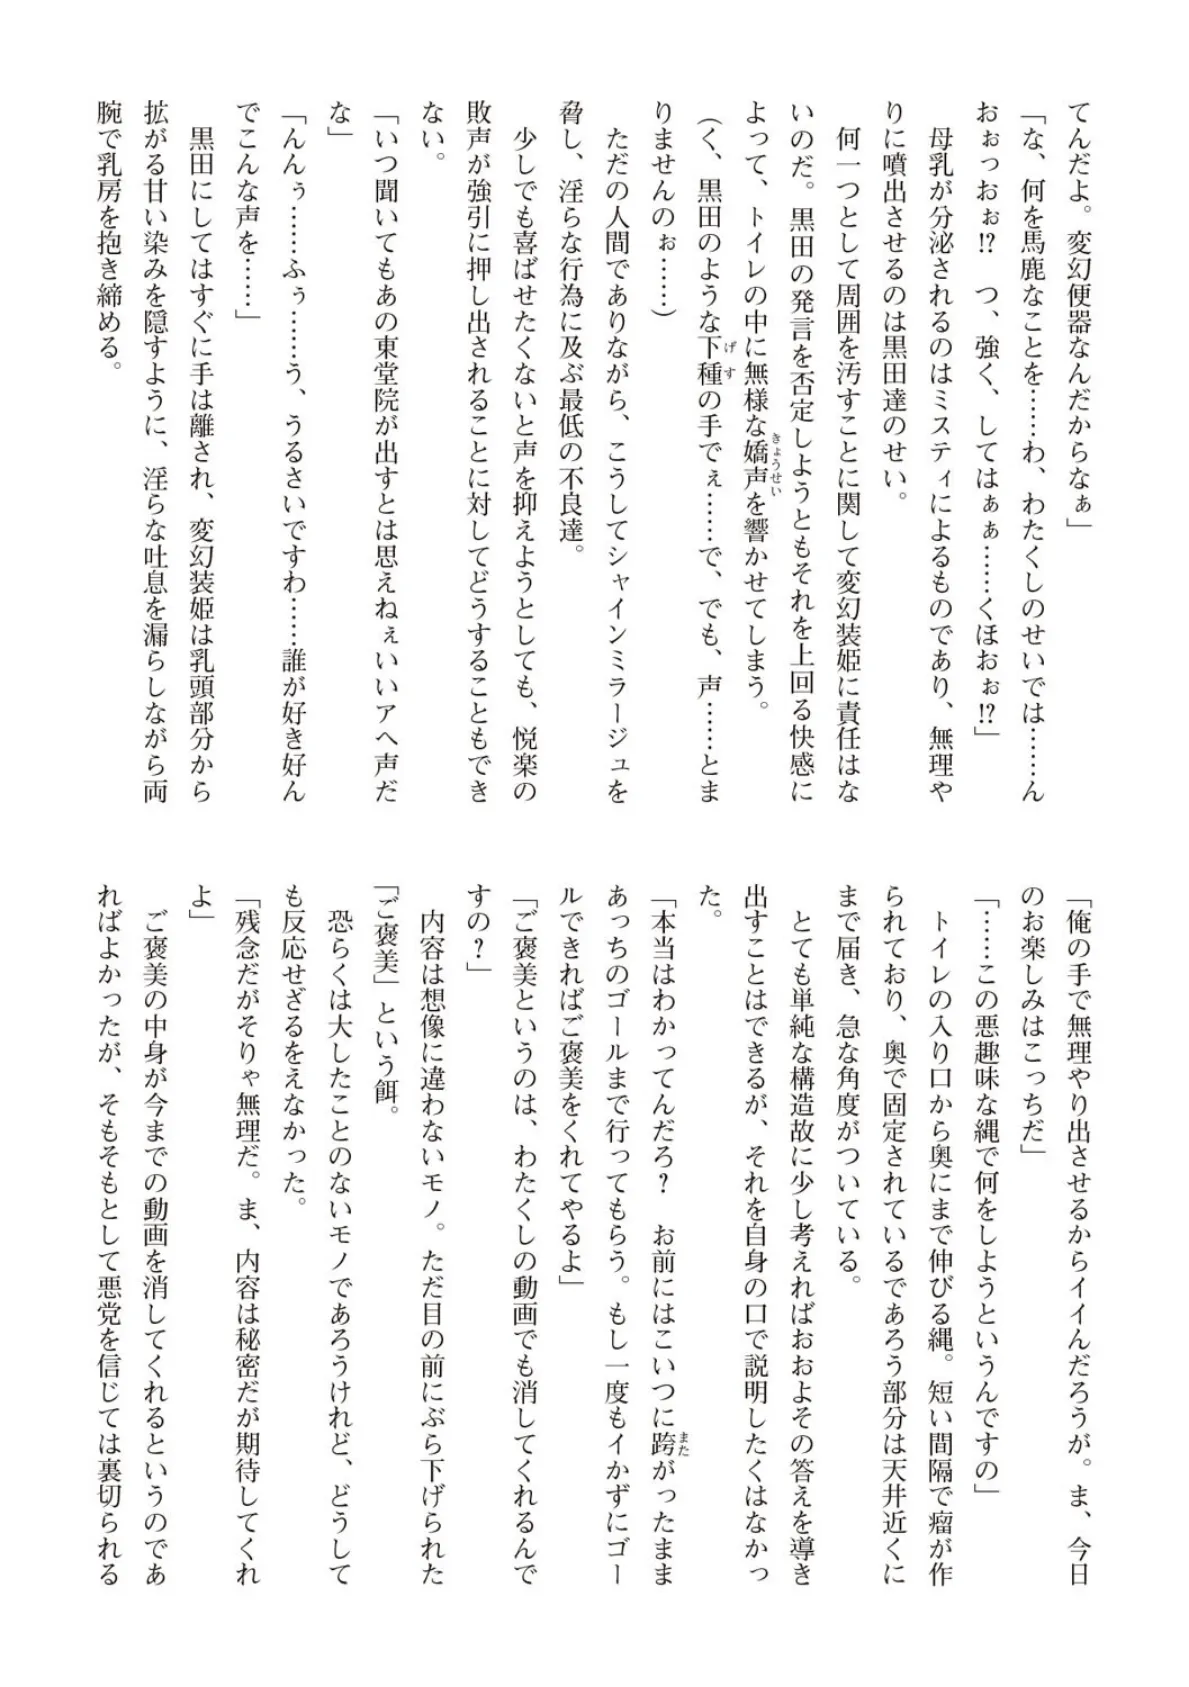 てんだよ。変幻便器なんだからなぁ」
「な、何を馬鹿なことを……わ、わたくしのせいでは……ん
おぉっおぉ!?　つ、強く、してはぁぁ……くほおぉ!?」
　母乳が分泌されるのはミスティによるものであり、無理や
りに噴出させるのは黒田達のせい。
　何一つとして周囲を汚すことに関して変幻装姫に責任はな
いのだ。黒田の発言を否定しようともそれを上回る快感に
よって、トイレの中に無様な嬌声を響かせてしまう。
（く、黒田のような下種の手でぇ……で、でも、声……とま
りませんのぉ……）
　ただの人間でありながら、こうしてシャインミラージュを
脅し、淫らな行為に及ぶ最低の不良達。
　少しでも喜ばせたくないと声を抑えようとしても、悦楽の
敗声が強引に押し出されることに対してどうすることもでき
ない。
「いつ聞いてもあの東堂院が出すとは思えねぇいいアヘ声だ
な」
「んんぅ……ふぅ……う、うるさいですわ……誰が好き好ん
でこんな声を……」
　黒田にしてはすぐに手は離され、変幻装姫は乳頭部分から
拡がる甘い染みを隠すように、淫らな吐息を漏らしながら両
腕で乳房を抱き締める。
「俺の手で無理やり出させるからイイんだろうが。ま、今日
のお楽しみはこっちだ」
「……この悪趣味な縄で何をしようというんですの」
　トイレの入り口から奥にまで伸びる縄。短い間隔で瘤が作
られており、奥で固定されているであろう部分は天井近くに
まで届き、急な角度がついている。
　とても単純な構造故に少し考えればおおよその答えを導き
出すことはできるが、それを自身の口で説明したくはなかっ
た。
「本当はわかってんだろ？　お前にはこいつに跨がったまま
あっちのゴールまで行ってもらう。もし一度もイかずにゴー
ルできればご褒美をくれてやるよ」
「ご褒美というのは、わたくしの動画でも消してくれるんで
すの？」
　内容は想像に違わないモノ。ただ目の前にぶら下げられた
「ご褒美」という餌。
　恐らくは大したことのないモノであろうけれど、どうして
も反応せざるをえなかった。
「残念だがそりゃ無理だ。ま、内容は秘密だが期待してくれ
よ」
　ご褒美の中身が今までの動画を消してくれるというのであ
ればよかったが、そもそもとして悪党を信じては裏切られる